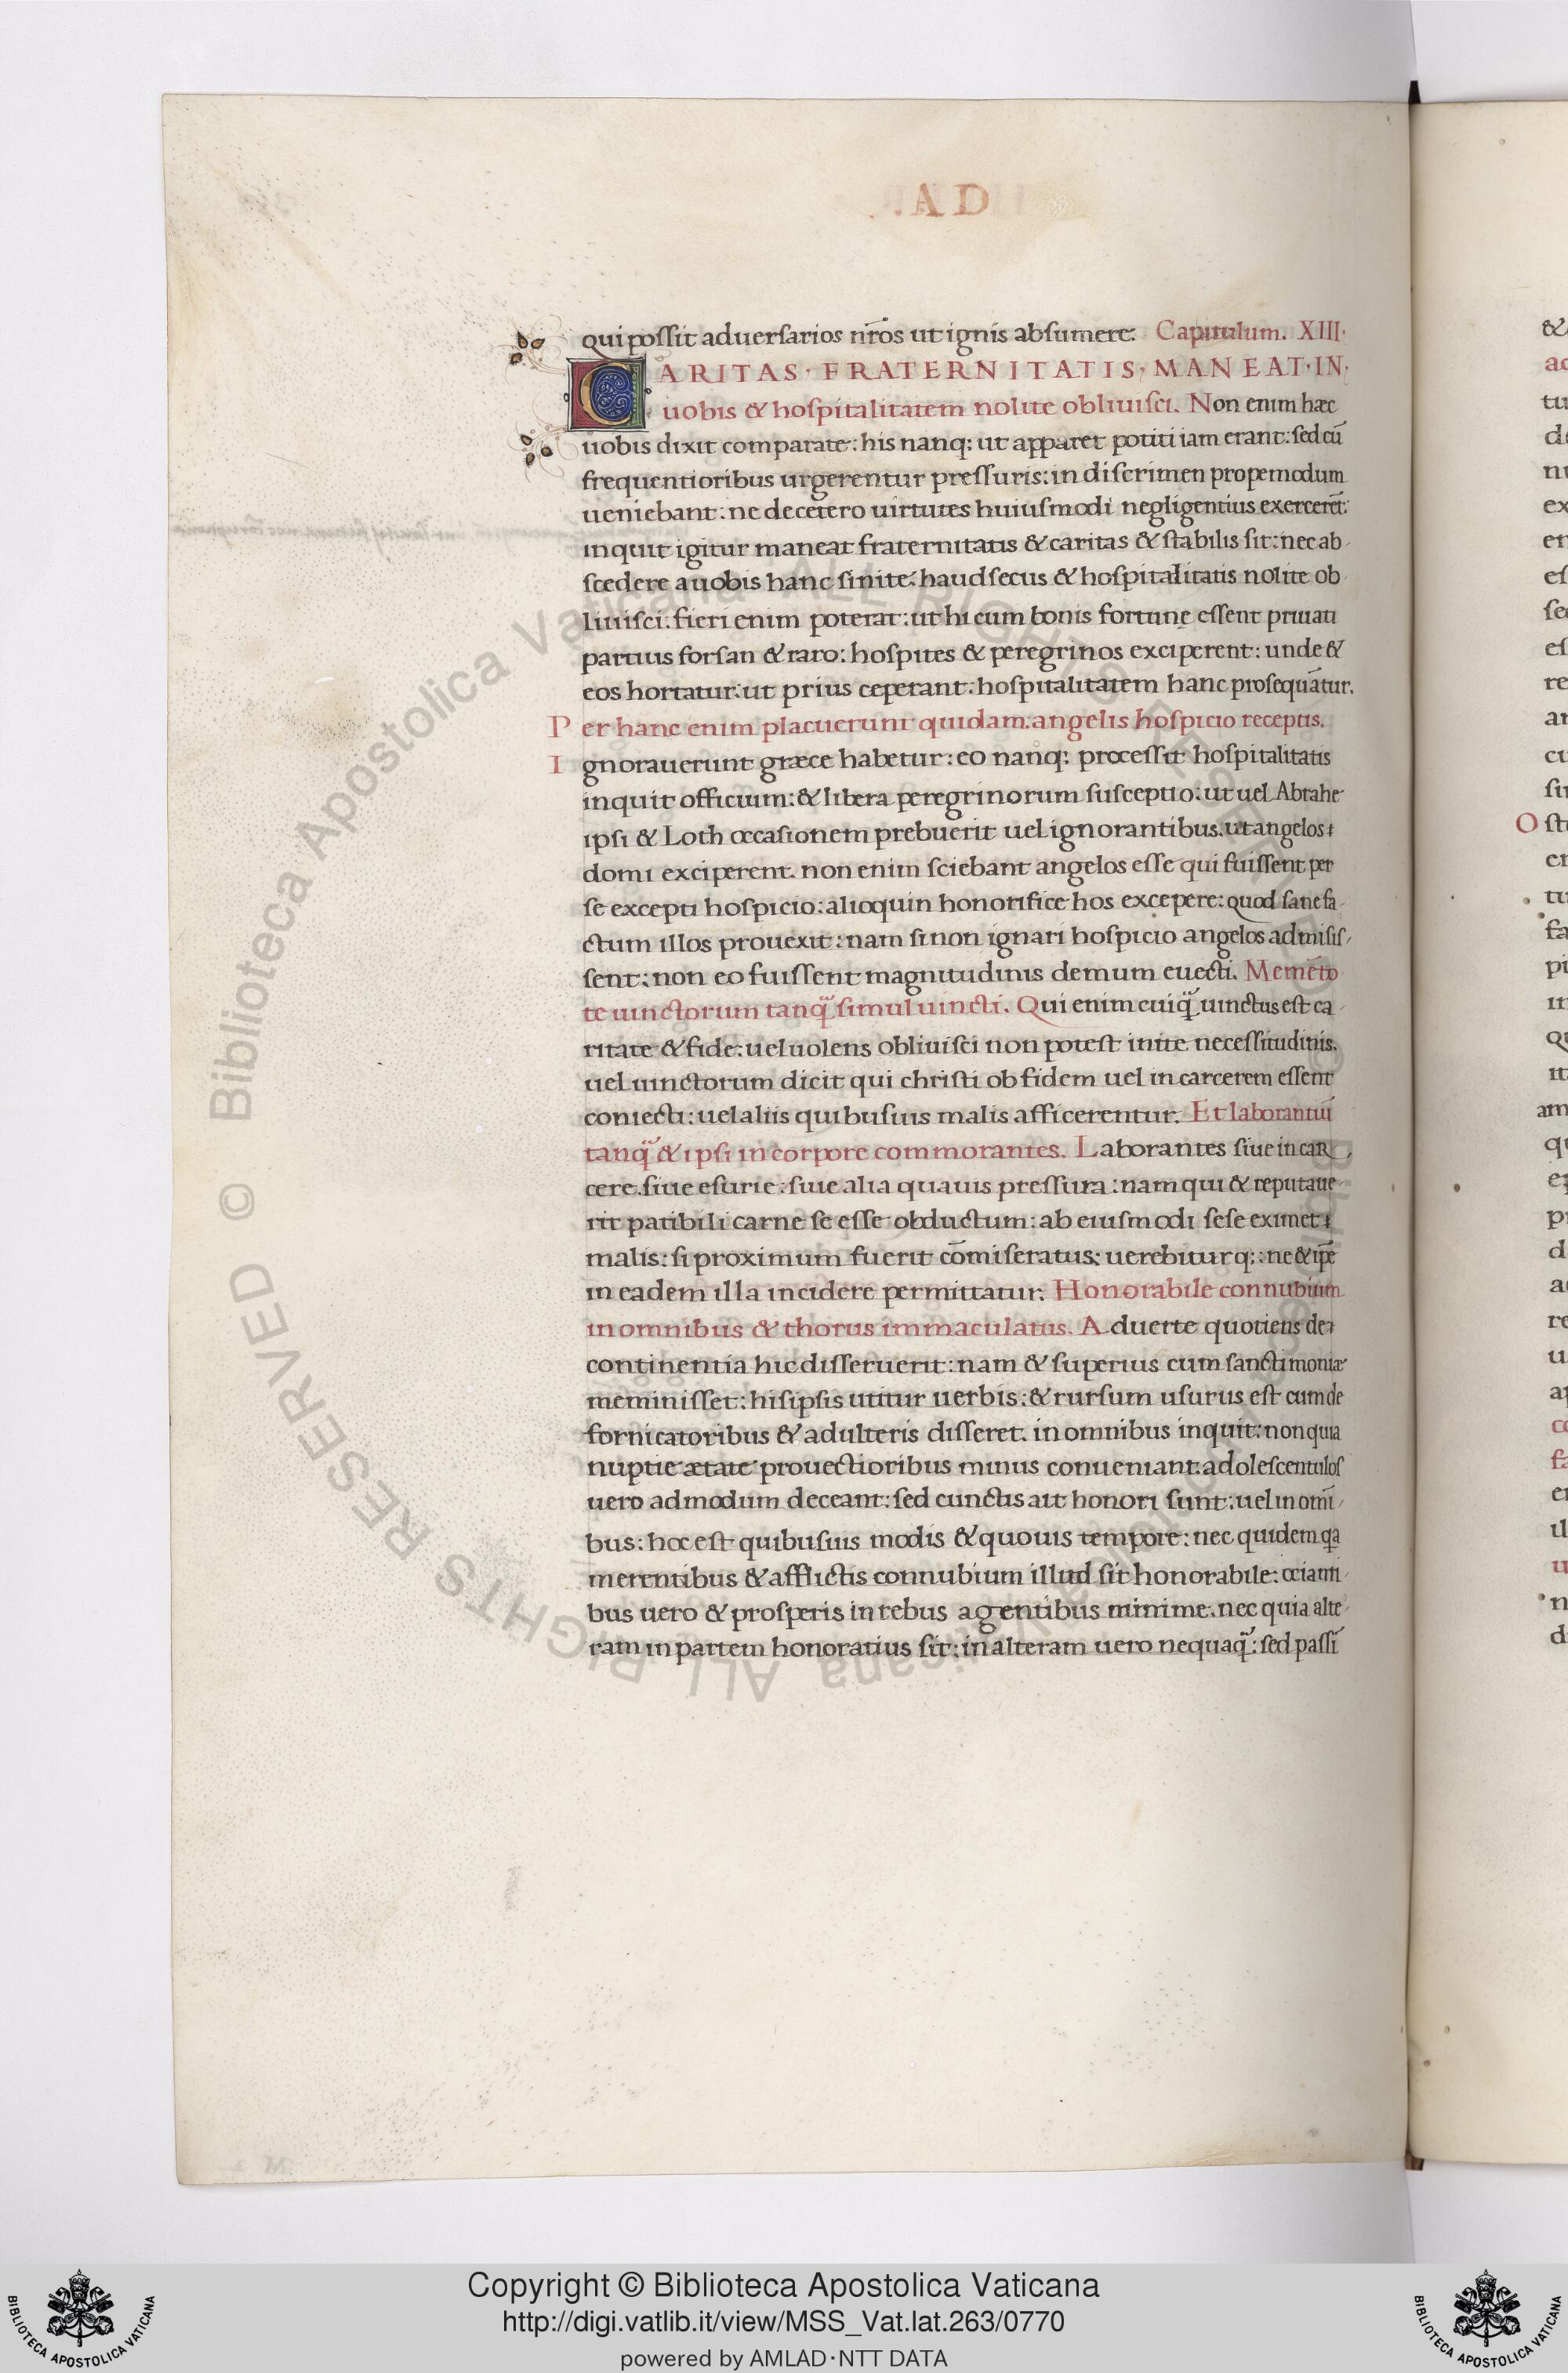 .AD
qui possit aduersarios nr̄os ut ignis absumere. Capitulum. XIII.
CARITAS · FRATERNITATIS · MANEAT · IN ·
uobis & hospitalitatem nolite obliuisci. Non enim hæc
uobis dixit comparate: his nanq; ut apparet potiti iam erant: sed cū
frequentioribus urgerentur pressuris: in discrimen propemodum
ueniebant: ne decetero uirtutes huiusmodi negligentius exercerēt:
inquit igitur maneat fraternitatis & caritas & stabilis sit: nec ab
scedere a uobis hanc sinite: haud secus & hospitalitatis nolite ob
liuisci. fieri enim poterat: ut hi cum bonis fortunę essent priuati
partius forsan & raro: hospites & peregrinos exciperent: unde &
eos hortatur: ut prius ceperant: hospitalitatem hanc prosequātur.
Per hanc enim placuerunt quidam. angelis hospicio receptis.
Ignorauerunt græce habetur: eo nanq; processit hospitalitatis
inquit officium: & libera peregrinorum susceptio: ut uel Abrahe
ipsi & Loth occasionem prebuerit uel ignorantibus. ut angelos
domi exciperent. non enim sciebant angelos esse qui fuissent per
se excepti hospicio: alioquin honorifice hos excepere: quod sane fa
ctum illos prouexit: nam si non ignari hospicio angelos admisis
sent: non eo fuissent magnitudinis demum euecti. Memēto
te uinctorum tanq̃ simul uincti. Qui enim cuiq̃ uinctus est ca
ritate & fide: uel uolens obliuisci non potest inite necessitudinis.
uel uinctorum dicit qui christi ob fidem uel in carcerem essent
coniecti: uel aliis quibusuis malis afficerentur. Et laborantiū
tanq̃ & ipsi in corpore commorantes. Laborantes siue in car
cere. siue esurie: siue alia quauis pressura: nam qui & reputaue
rit patibili carne se esse obductum: ab eiusmodi sese eximet
malis: si proximum fuerit cōmiseratus: uerebiturq;: ne & ip̄e
in eadem illa incidere permittatur. Honorabile connubium
in omnibus & thorus immaculatus. Aduerte quotiens de
continentia hic disseruerit: nam & superius cum sanctimoniæ
meminisset: his ipsis utitur uerbis: & rursum usurus est cum de
fornicatoribus & adulteris disseret. in omnibus inquit: non quia
nuptie ætate prouectioribus minus conueniant: adolescentulos
uero admodum deceant: sed cunctis ait honori sunt: uel in omī
bus: hoc est quibusuis modis & quouis tempore: nec quidem qa
merentibus & afflictis connubium illud sit honorabile: ocianti
bus uero & prosperis in rebus agentibus minime. nec quia alte
ram in partem honoratius sit: in alteram uero nequaq̃: sed passī
© Biblioteca Apostolica Vaticana ALL RIGHTS RESERVED
Copyright © Biblioteca Apostolica Vaticana
http://digi.vatlib.it/view/MSS_Vat.lat.263/0770
powered by AMLAD·NTT DATA
BIBLIOTECA APOSTOLICA VATICANA
BIBLIOTECA APOSTOLICA VATICANA